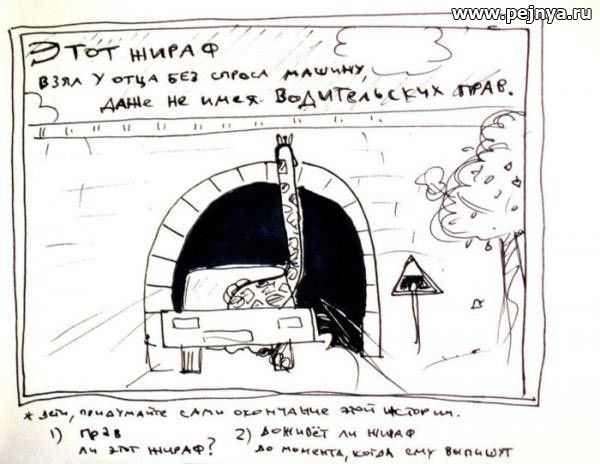 www.pejnya.ru
Этот жираф
взял у отца без спроса машину,
даже не имея водительских прав.
* Дети, придумайте сами окончание этой истории.
1) Прав
ли этот жираф?
2) Доживёт ли жираф
до момента, когда ему выпишут